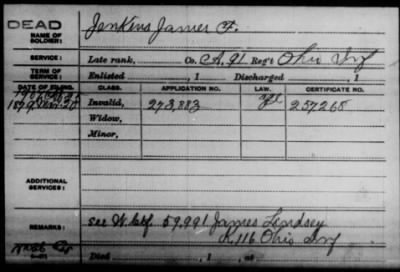 DEAD
NAME OF SOLDIER:
Jenkins James F.
SERVICE:
Late rank, Co. A, 91 Reg't Ohio Inf
TERM OF SERVICE:
Enlisted , 1 Discharged , 1
DATE OF FILING. CLASS. APPLICATION NO. LAW. CERTIFICATE NO.
Invalid, 273,883 257268
Widow,
Minor,
ADDITIONAL SERVICES:
REMARKS: see W. Ctf. 59.991 James Lindsey
K, 116 Ohio Inf
Died , 1 , at